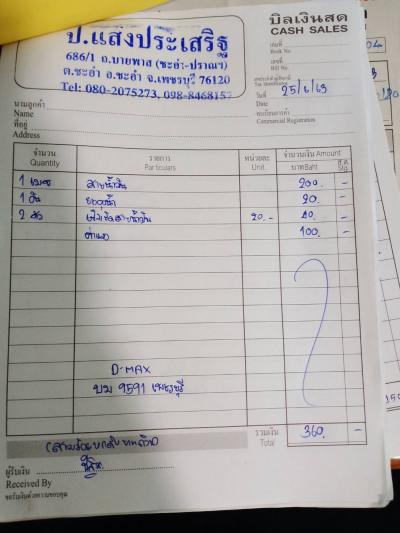 ป.แสงประเสริฐ
686/1 ถ.บายพาส (ชะอำ-ปราณฯ)
ต.ชะอำ อ.ชะอำ จ.เพชรบุรี 76120
Tel: 080-2075273, 098-8468157
บิลเงินสด
CASH SALES
เล่มที่
Book No.
เลขที่
Bill No.
วันที่ 25/6/63
Date
นามลูกค้า
Name
ที่อยู่
Address
ทะเบียนการค้า
Commercial Registration
จำนวน รายการ หน่วยละ จำนวนเงิน Amount
Quantity Particulars Unit. บาท Baht ส.ต. Stg.
1 เมตร สายน้ำมัน 200. -
1 อัน 20. -
2 ตัว เข็มขัดสายน้ำมัน 20.- 40. -
ค่าแรง 100. -
D-MAX
บม 9591 เพชรบุรี
รวมเงิน
Total 360. -
(สามร้อยหกสิบบาทถ้วน)
ผู้รับเงิน
Received By
ขอรับเงินด้วยความขอบคุณ